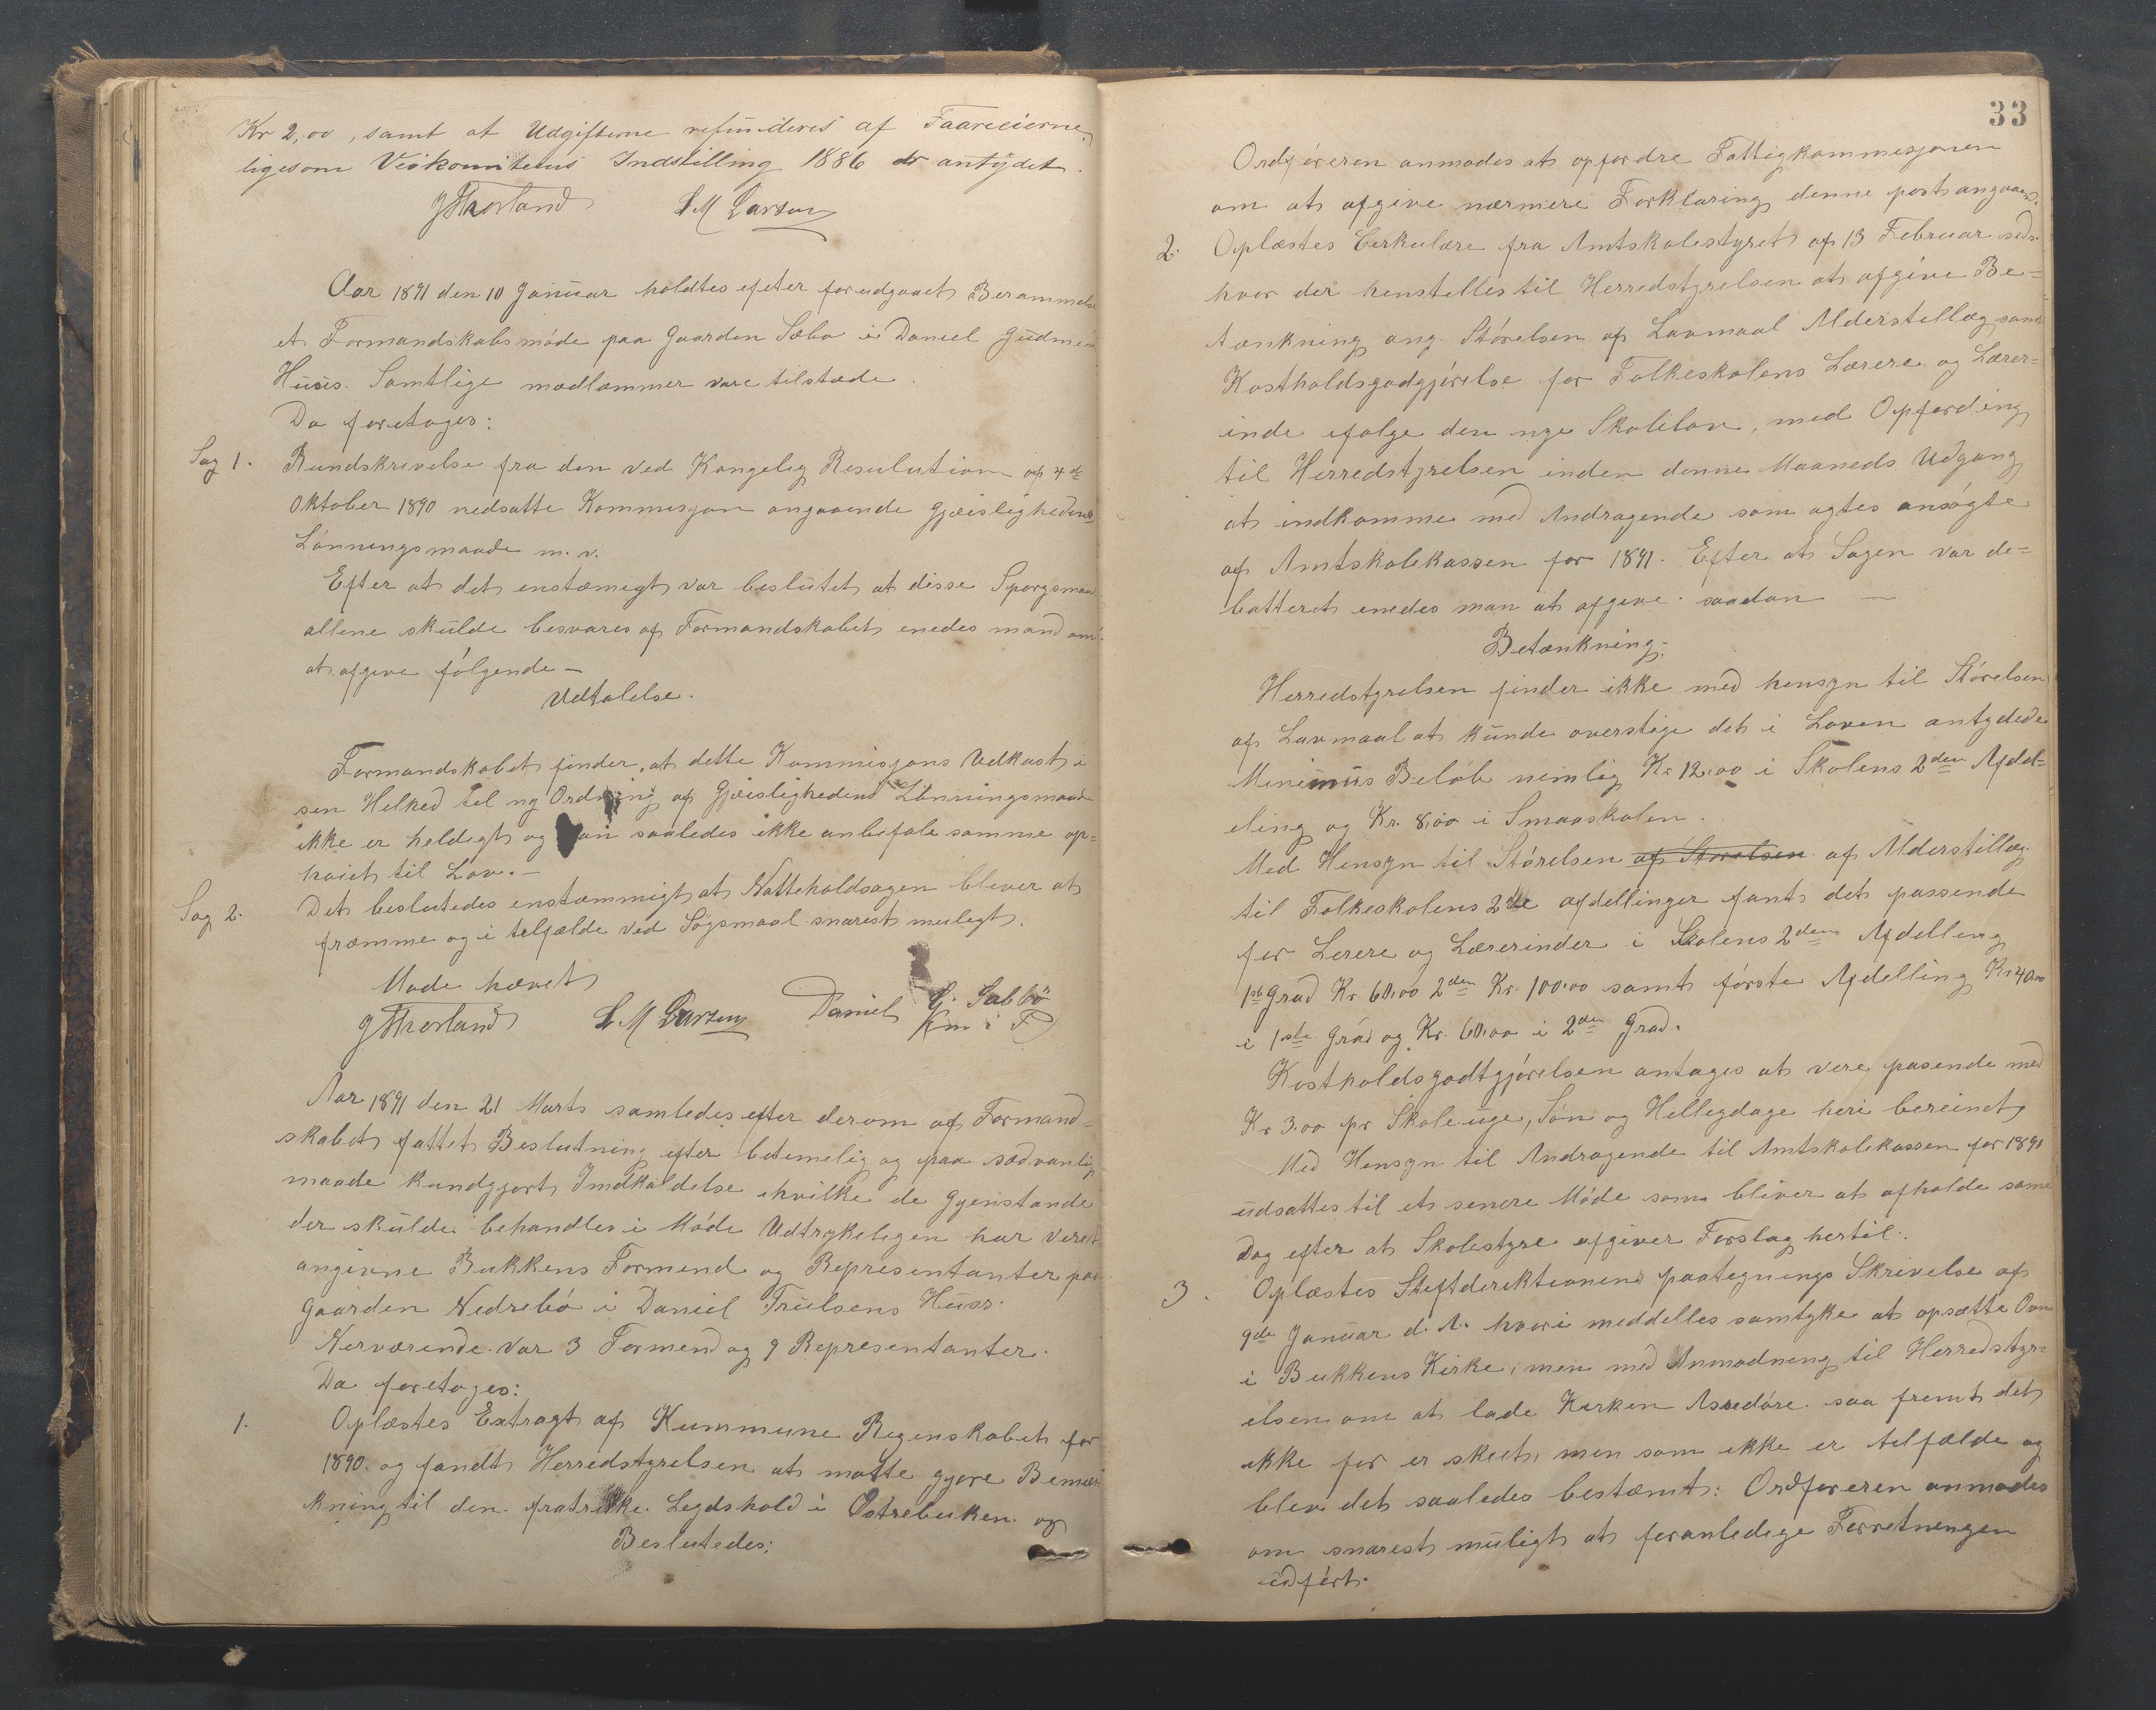 Kr 2,00, samt at Udgifterne refunderes af Faareeierne,
ligesom Veikomiteens Indstilling 1886 er antydet.
L M Larsen
Aar 1891 den 10 Januar holdtes efter forudgaaet Berammelse
et Formandskabsmöde paa Gaarden Sæbø i Daniel
Huus. Samtlige medlæmmer vare tilstæde.
Da foretoges:
Sag 1. Rundskrivelse fra den ved Kongelig Resulution af 4de
Oktober 1890 nedsatte Kommisjon angaaende Gjeislighedens
Lönningsmaade m.v.
Efter at det enstæmigt var beslutet at disse Sporgsmaal
allene skulde besvares af Formandskabet enedes mand om
at afgive fölgende –
Udtalelse.
Formandskabet finder, at dette Kommisjons Udkast i
sen Helhed til ny Ordning af Gjeislighedens Lönningsmaade
ikke er heldigt og kan saaledes ikke anbefale samme op=
høiet til Lov. –
Sag 2. Det beslutedes enstæmmigt at Notteholdsagen bliver at
fræmme og i telfælde ved Sögsmaal snarest muligt.
Møde hævet
L M Larsen Daniel G. Sæbbö
Km i P
Aar 1891 den 21 Marts samledes efter derom af Formand=
skabet fattet Beslutning efter betimelig og paa sædvanlig
maade kundgjort Indkaldelse ihvilke de Gjenstande
der skulde behandles i Möde Udtrykelegen har veret
angivne Bukkens Formend og Representanter paa
Gaarden Nedrebö i Daniel Trulsens Huus.
Nerværende var 3 Formend og 9 Representanter.
Da foretoges:
1. Oplæstes Extragt af Kummune Regenskabet for
1890. og fandt Herredstyrelsen at matte gjøre Bemær
kning til den fratrukke Legdshold i Östrebukken og
Beslutedes:
33
Ordføreren anmodes at opfordre Fattigkommisjonen
om at afgive nærmere Forklaring denne post angaaende.
2. Oplæstes Cirkulære fra Amtskolestyret af 13 Februar sids.
hvor der henstelles til Herredstyrelsen at afgive Be=
tænkning ang. Störelsen af Lavmaal Alderstellæg samt
Kostholdsgodgjörelse for Folkeskolens Lærere og Lærer=
inde efølge den nye Skolelov, med Opfording
til Herredstyrelsen inden denne Maaneds Udgang
at indkomme med Andragende som agtes ansögte
af Amtskolekassen for 1891. Efter at Sagen var de=
batteret enedes man at afgeve saadan —
Betænkning:
Herredstyrelsen finder ikke med hensyn til Störelsen
af Lavmaal at kunde overstige det i Loven antydede
Minimums Belöb nemlig Kr 12.00 i Skolens 2den Afdel=
eling og Kr. 8,00 i Smaaskolen.
Med Hensyn til Störelsen af Störelsen af Alderstillæg
til Folkeskolens 2de afdellinger fant det passende
for Lerere og Lærerinder i Skolens 2den Afdelleng
1ste Grad Kr. 60.00 2den Kr. 100.00 samt förste Afdelling Kr 40.00
i 1ste Grad og Kr. 60.00 i 2den Grad.
Kostholdsgodtgjörelsen antages at vere pasende med
Kr 3.00 pr Skole uge, Sön og Hellegdage heri bereinet
Med Hensyn til Andragende til Amtskolekassen for 1891
udsattes til et senere Möde som bliver at afholde same
Dag efter at Skolestyre afgiver Forslag hertil.
3. Oplæstes Steftdirektionens paategnings Skrivelse af
9de Januar d. A. hvori meddelles samtyke at opsætte Ovn
i Bukkens Kirke, men med Anmodning til Herredstyr=
elsen om at lade Kirken Assedöre saa fremt det
ikke før er skeet, men som ikke er telfælde og
blev det saaledes bestæmt: Ordføreren anmodes
om snarest muligt at foranledige Forretnengen
udfört.